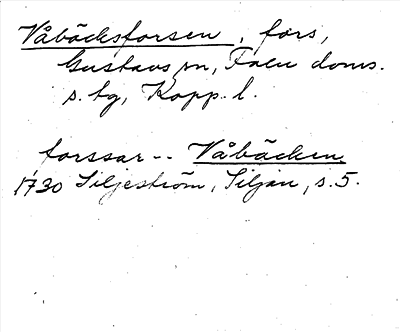 Våbäcksforsen, fors,
Gustavs sn, Falu doms.
s. tg, Kopp. l.
forssar -- Våbäcken
1730 Siljeström, Siljan, s. 5.